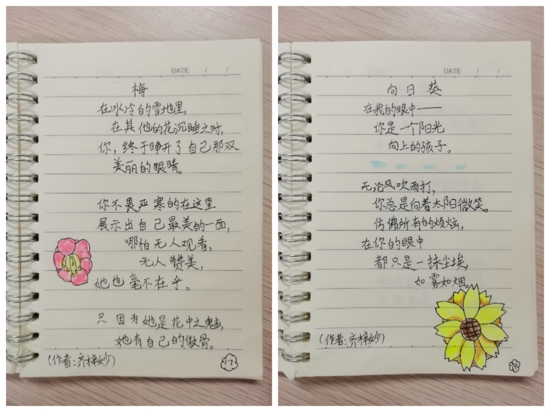 DATE / /
梅
在冰冷的雪地里,
在其他的花沉睡之时,
你,终于睁开了自己那双
美丽的眼睛。
你不畏严寒的在这里
展示出自己最美的一面,
哪怕无人观看,
无人赞美,
她也毫不在乎。
只因为她是花中之魁,
她有自己的傲骨。
(作者:齐梓妙)
DATE / /
向日葵
在我的眼中——
你是一个阳光
向上的孩子。
无论风吹雨打,
你总是向着太阳微笑
仿佛所有的烦恼,
在你的眼中
都只是一抹尘埃,
如雾如烟。
(作者:齐梓妙)